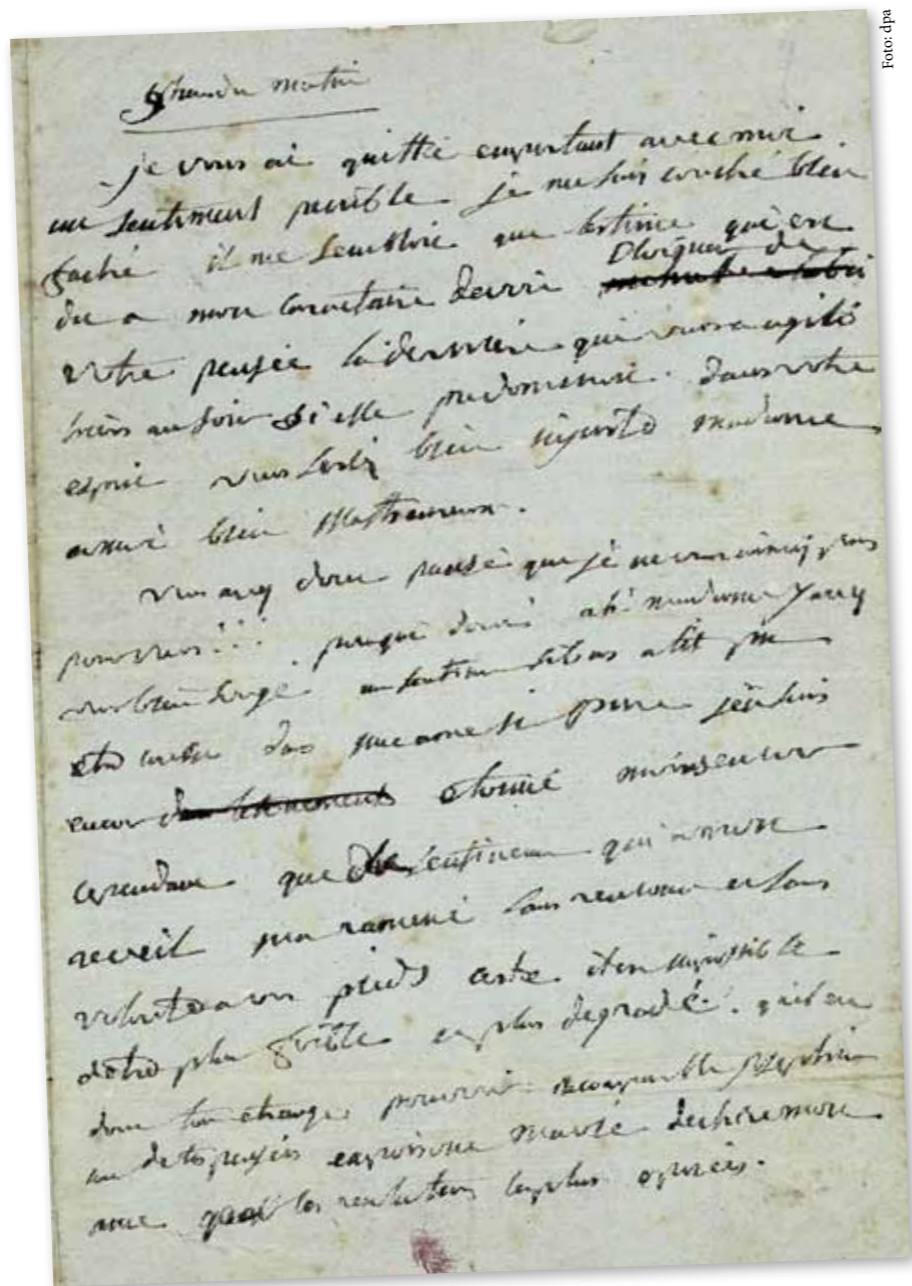 9 heures du matin
je vous ai quitté emportant avec moi
un sentiment penible je me suis couché bien
faché il me sembloit que lestime qui est
du a mon caractaire devoit éloigner de
votre pensée la derniere qui vous agité
hiers au soir si elle predominoit dans votre
esprit vous seriez bien injuste madame
et moi bien malheureux.
vous avez donc pensé que je ne vous aimoi pas
pour vous!!! pour qui donc ah! madame
vous bien un sentiment si bas a til pu
etre dans une ame si pure jen suis
encor etonné moins encor
cependant que du sentiment qui a mon
reveil ma ramené sans rancune et sans
volonté a vos pieds certe il est impossible
detre plus faible et plus degradé. quel est
donc ton etrange pouvoir incomparable Josephine
une de tes pensées empoisonne ma vie dechire mon
ame les resolutions les plus
Foto: dpa